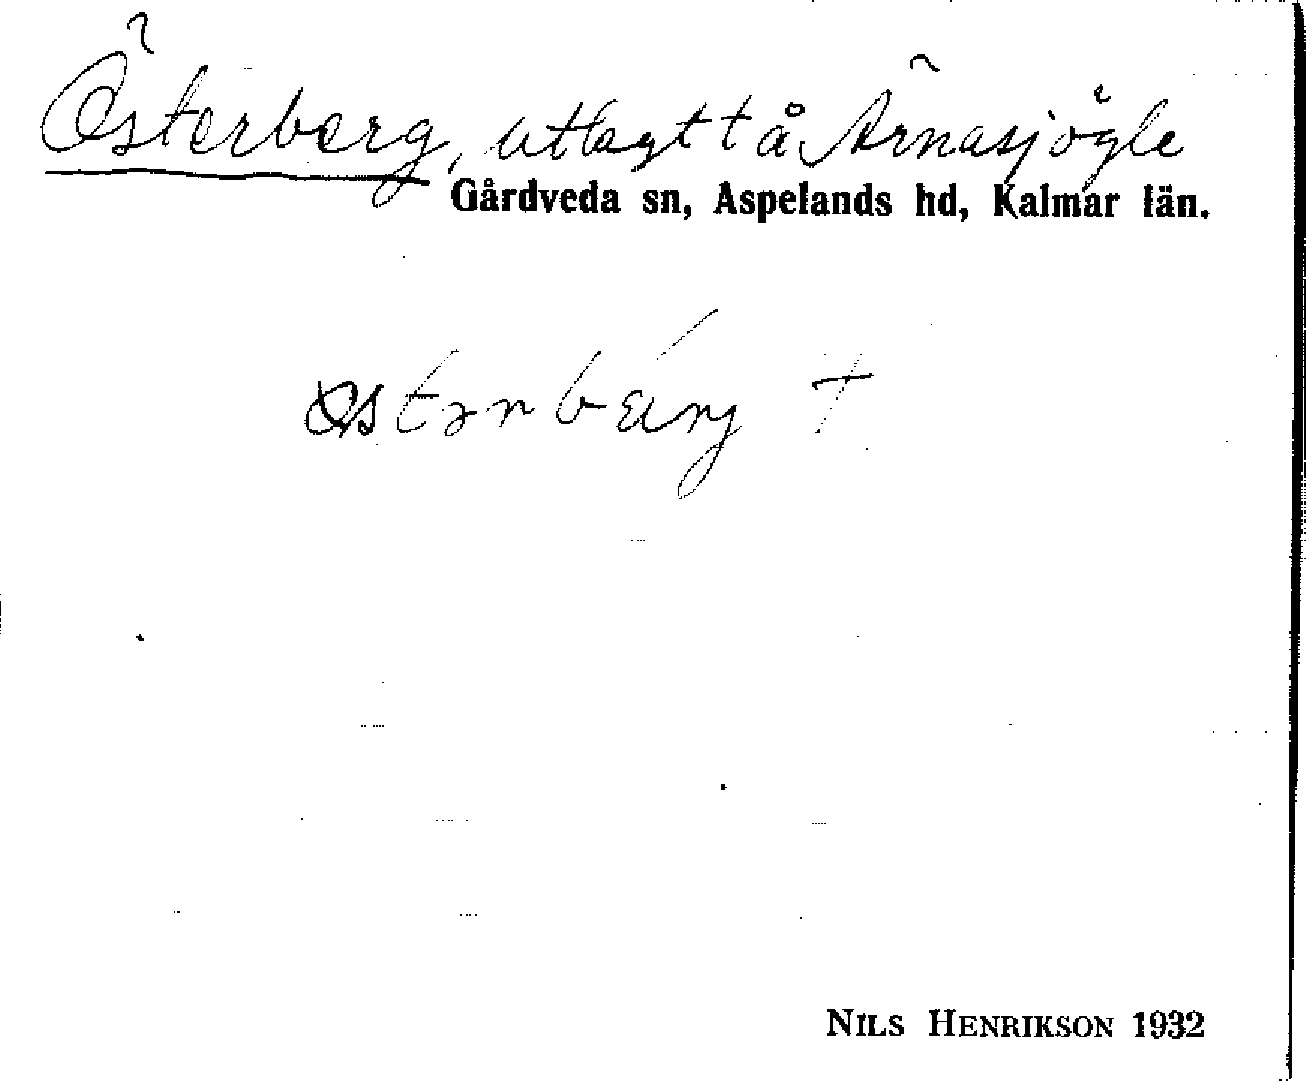 Österberg, utlagt t å Ärnasjögle
Gårdveda sn, Aspelands hd, Kalmar län.
NILS HENRIKSON 1932